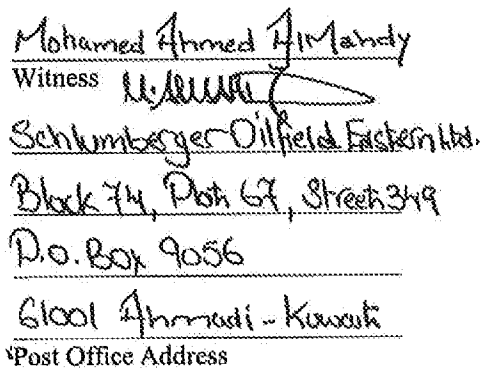 Mohamed Ahmed AlMahdy
Witness
Schlumberger Oilfield Eastern Ltd.
Block 74, Plot 67, Street 349
P.O. Box 9056
61001 Ahmadi - Kuwait
Post Office Address